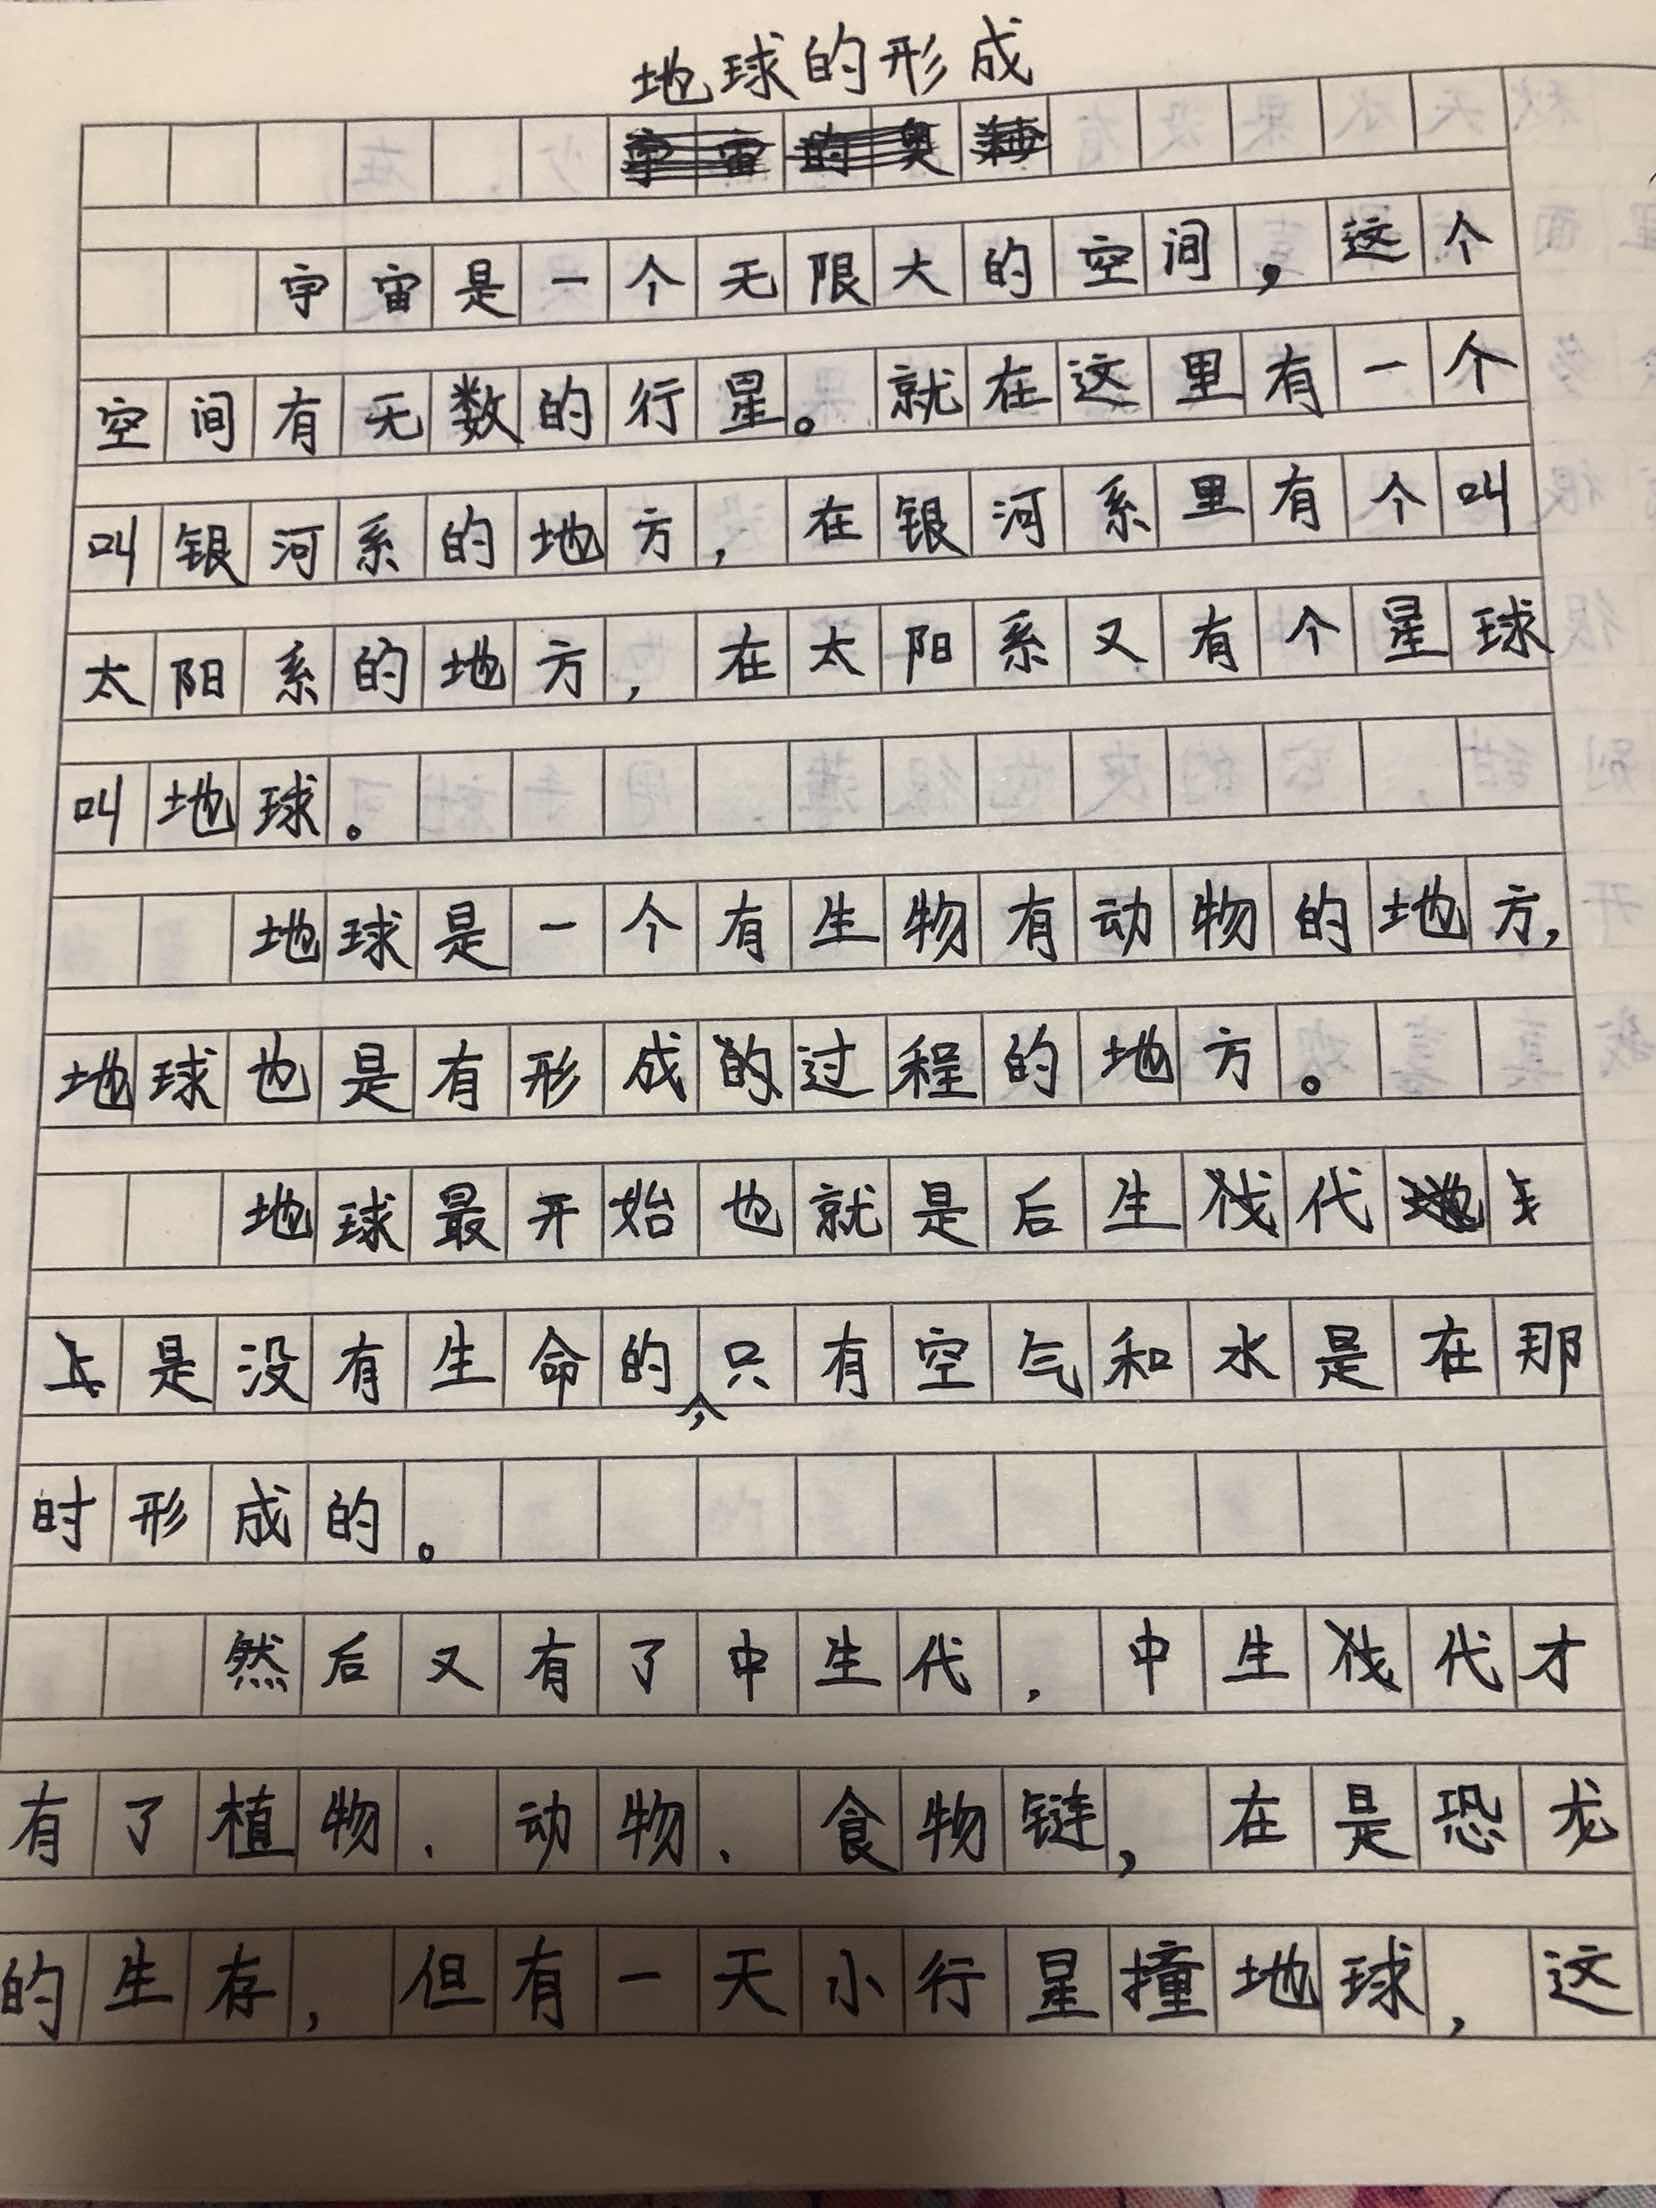 地球的形成
宇宙的奥秘
宇宙是一个无限大的空间，这个
空间有无数的行星。就在这里有一个
叫银河系的地方，在银河系里有个叫
太阳系的地方，在太阳系又有个星球
叫地球。
地球是一个有生物有动物的地方，
地球也是有形成的过程的地方。
地球最开始也就是后生代
上是没有生命的，只有空气和水是在那
时形成的。
然后又有了中生代，中生代才
有了植物、动物、食物链，在是恐龙
的生存，但有一天小行星撞地球，这